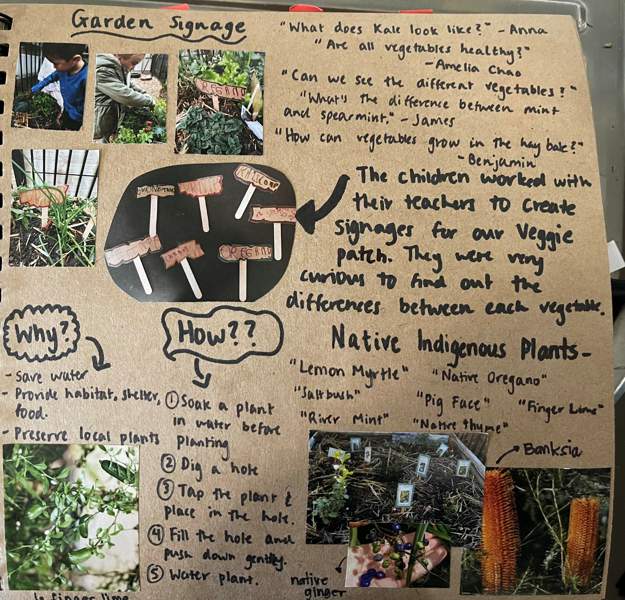 Garden Signage
"What does Kale look like?" - Anna
"Are all vegetables healthy?"
- Amelia Chao
"Can we see the different vegetables?"
"What's the difference between mint
and spearmint." - James
"How can vegetables grow in the hay bale?"
- Benjamin
The children worked with
their teachers to create
signages for our veggie
patch. They were very
curious to find out the
differences between each vegetable.
Why?
- Save water
- Provide habitat, shelter,
food.
- Preserve local plants
How??
① Soak a plant
in water before
planting
② Dig a hole
③ Tap the plant &
place in the hole.
④ Fill the hole and
push down gently.
⑤ Water plant.
Native Indigenous Plants -
"Lemon Myrtle" "Native Oregano"
"Saltbush" "Pig Face" "Finger Lime"
"River Mint" "Native thyme"
Banksia
native
ginger
finger lime